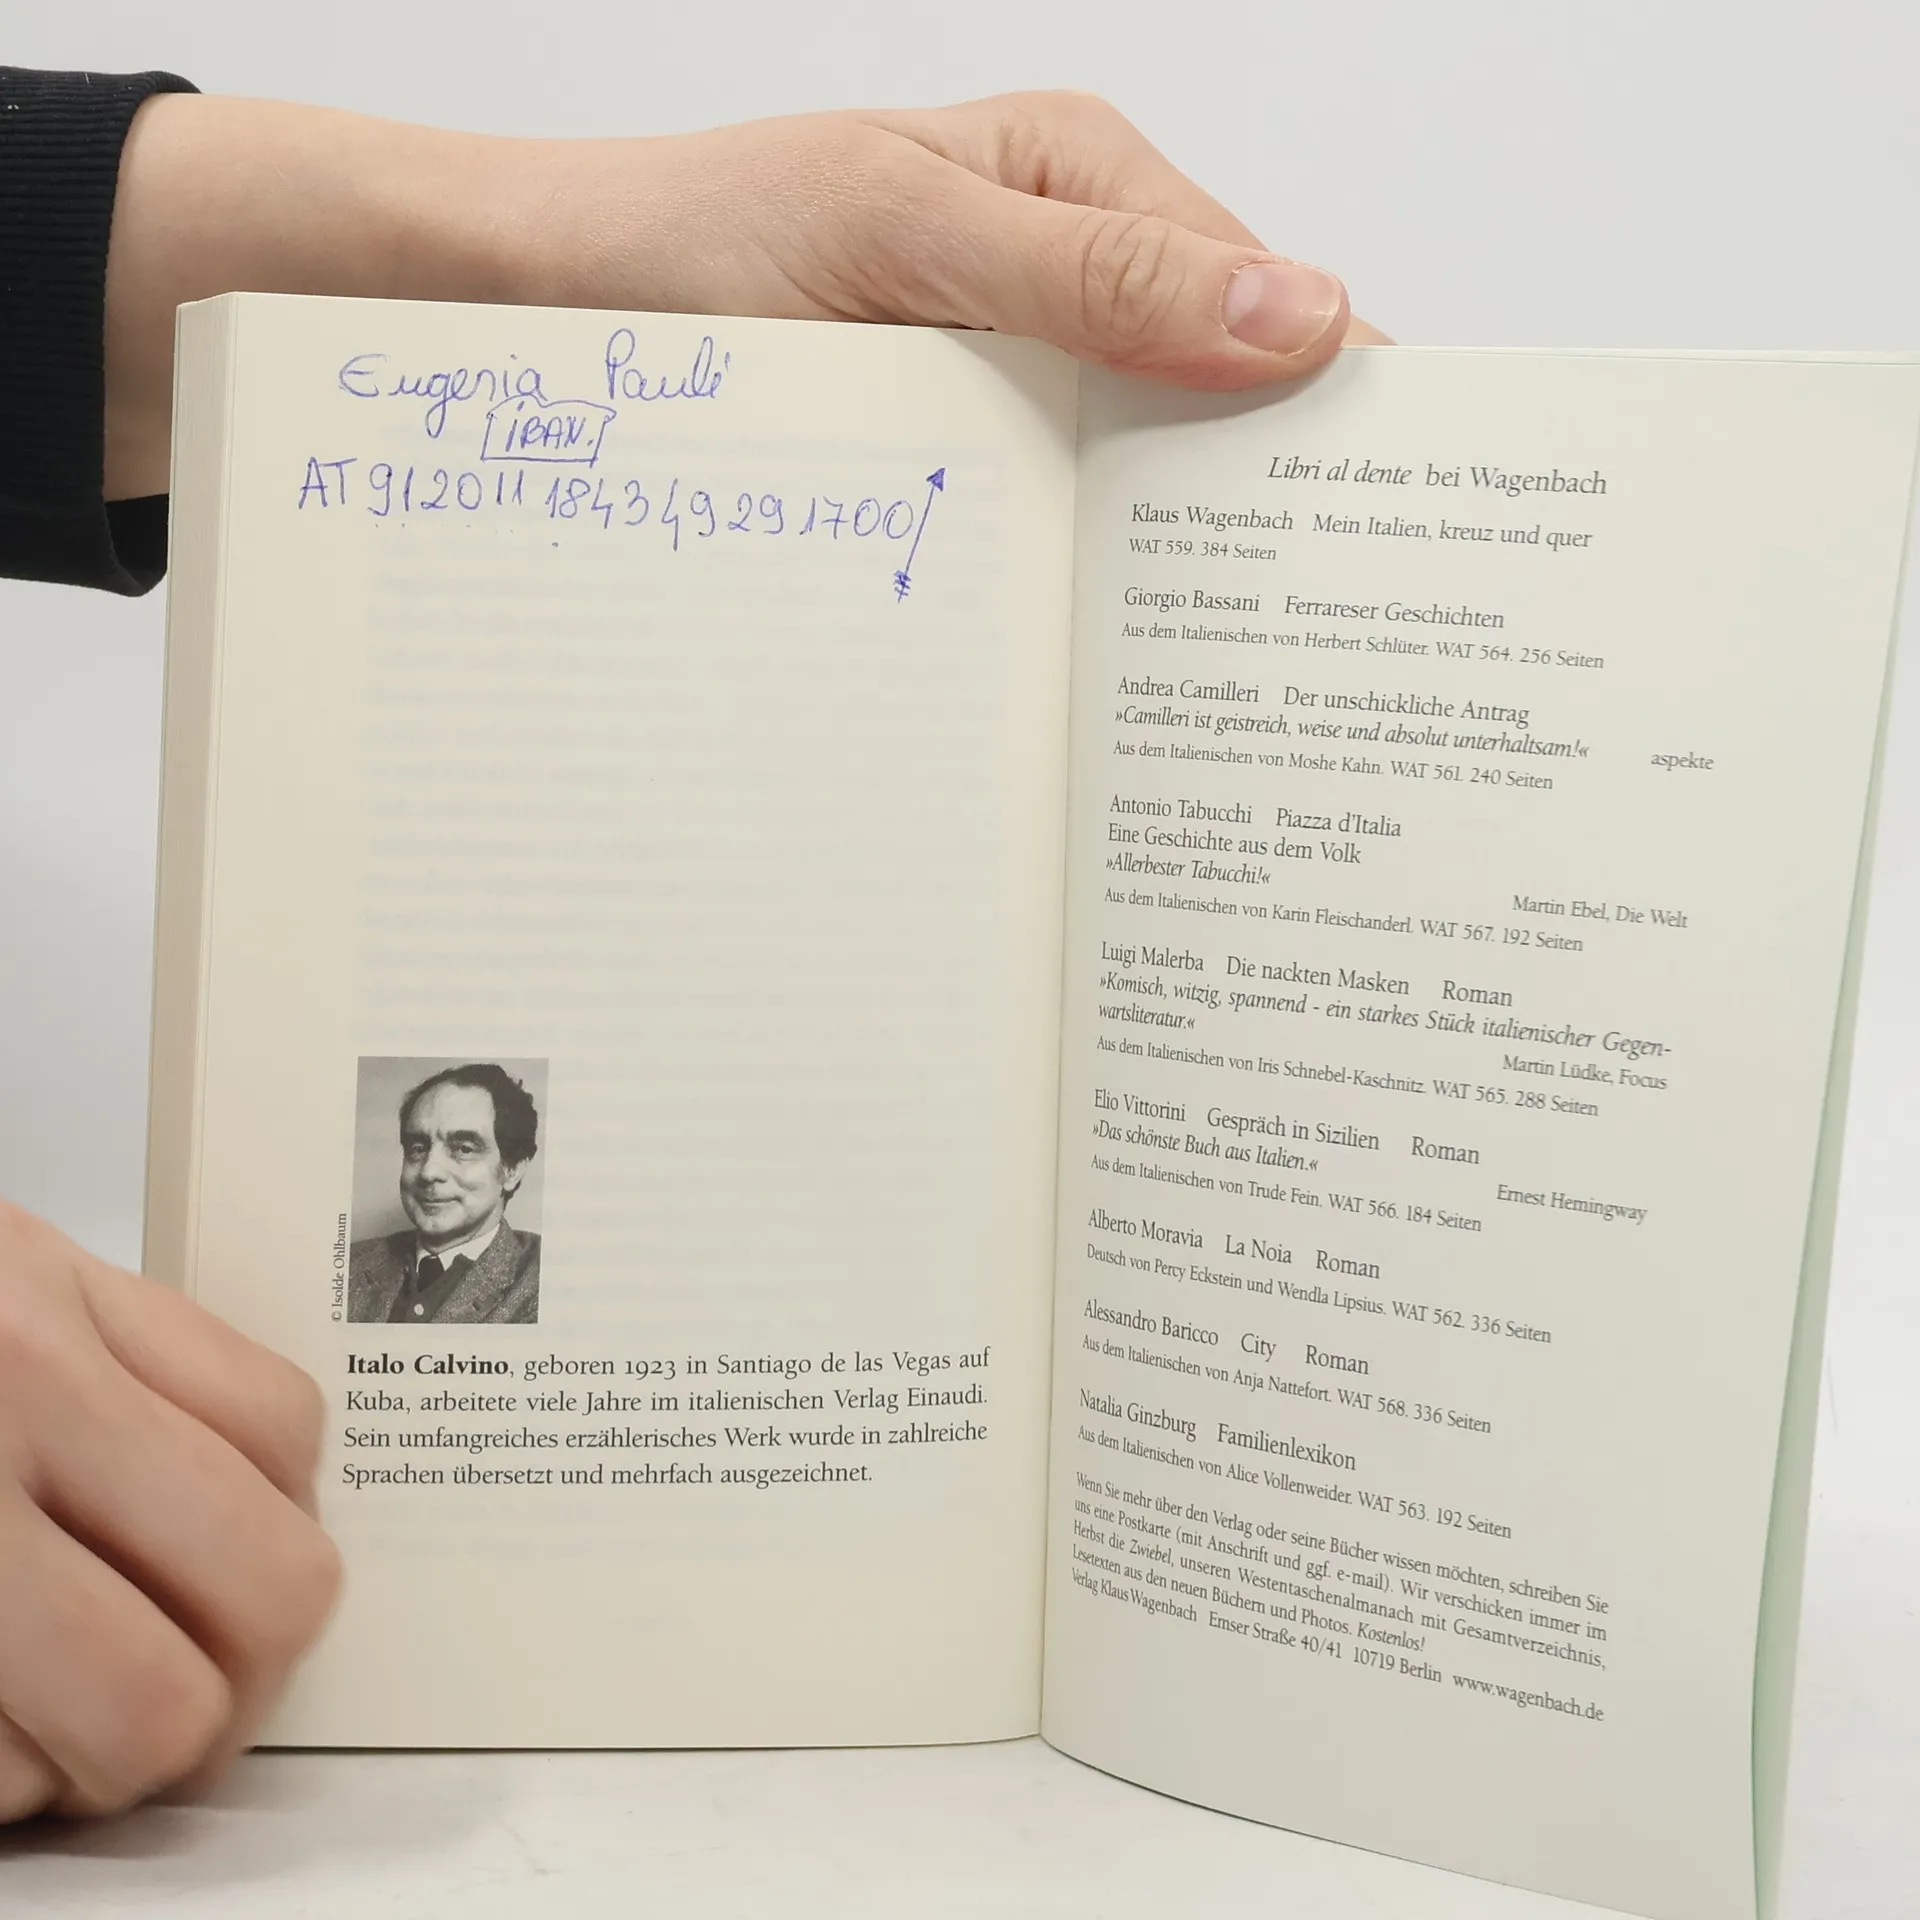 Eugenia Pauli
IBAN.
AT 91 2011 1843 4929 1700
© Isolde Ohlbaum
Italo Calvino, geboren 1923 in Santiago de las Vegas auf
Kuba, arbeitete viele Jahre im italienischen Verlag Einaudi.
Sein umfangreiches erzählerisches Werk wurde in zahlreiche
Sprachen übersetzt und mehrfach ausgezeichnet.
Libri al dente bei Wagenbach
Klaus Wagenbach Mein Italien, kreuz und quer
WAT 559. 384 Seiten
Giorgio Bassani Ferrareser Geschichten
Aus dem Italienischen von Herbert Schlüter. WAT 564. 256 Seiten
Andrea Camilleri Der unschickliche Antrag
»Camilleri ist geistreich, weise und absolut unterhaltsam!« aspekte
Aus dem Italienischen von Moshe Kahn. WAT 561. 240 Seiten
Antonio Tabucchi Piazza d'Italia
Eine Geschichte aus dem Volk
»Allerbester Tabucchi!«
Martin Ebel, Die Welt
Aus dem Italienischen von Karin Fleischanderl. WAT 567. 192 Seiten
Luigi Malerba Die nackten Masken Roman
»Komisch, witzig, spannend - ein starkes Stück italienischer Gegen-
wartsliteratur.«
Martin Lüdke, Focus
Aus dem Italienischen von Iris Schnebel-Kaschnitz. WAT 565. 288 Seiten
Elio Vittorini Gespräch in Sizilien Roman
»Das schönste Buch aus Italien.«
Ernest Hemingway
Aus dem Italienischen von Trude Fein. WAT 566. 184 Seiten
Alberto Moravia La Noia Roman
Deutsch von Percy Eckstein und Wendla Lipsius. WAT 562. 336 Seiten
Alessandro Baricco City Roman
Aus dem Italienischen von Anja Nattefort. WAT 568. 336 Seiten
Natalia Ginzburg Familienlexikon
Aus dem Italienischen von Alice Vollenweider. WAT 563. 192 Seiten
Wenn Sie mehr über den Verlag oder seine Bücher wissen möchten, schreiben Sie
uns eine Postkarte (mit Anschrift und ggf. e-mail). Wir verschicken immer im
Herbst die Zwiebel, unseren Westentaschenalmanach mit Gesamtverzeichnis,
Lesetexten aus den neuen Büchern und Photos. Kostenlos!
Verlag Klaus Wagenbach Emser Straße 40/41 10719 Berlin www.wagenbach.de